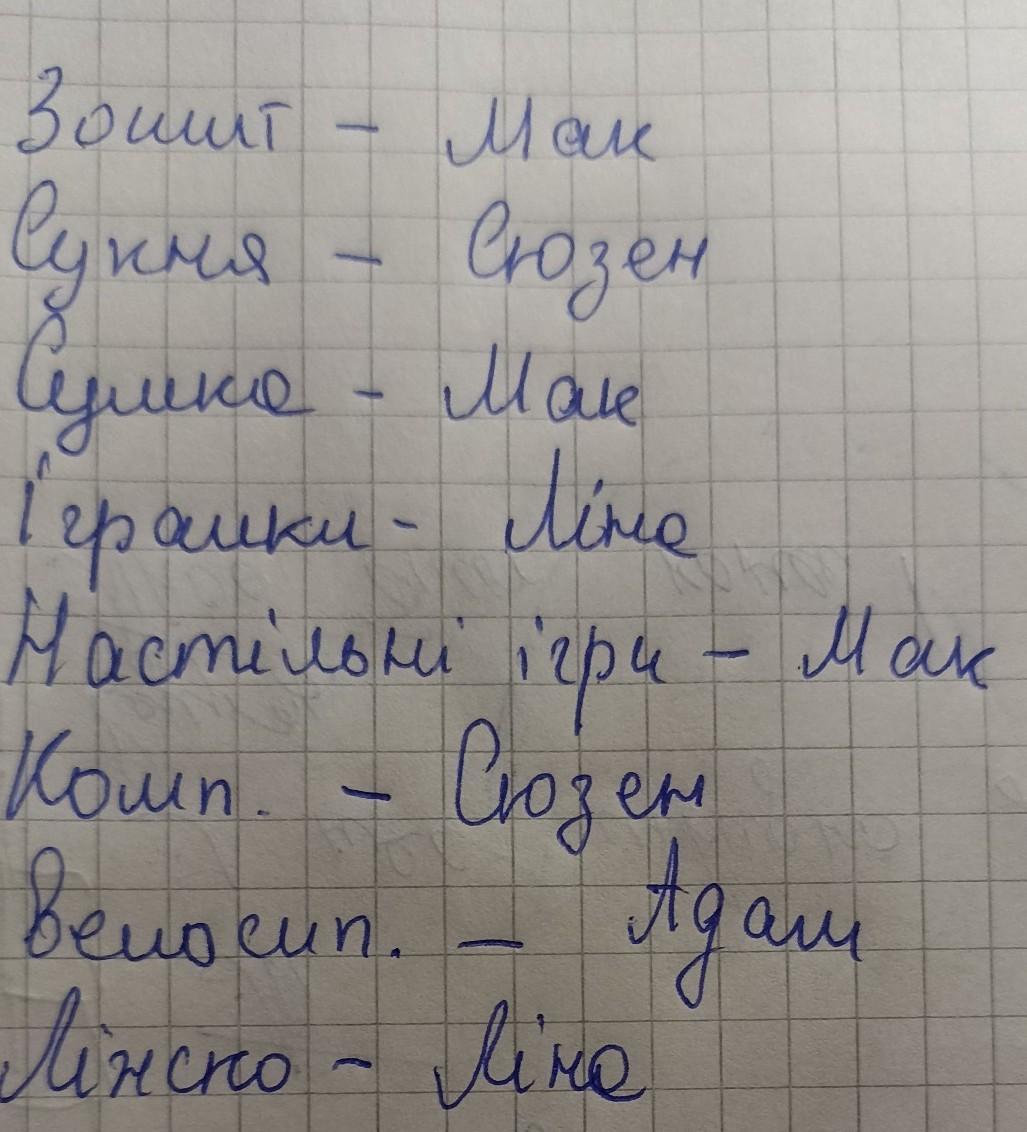 Зошит - Мак
Сукня - Сюзен
Сумка - Мак
Іграшки - Ліна
Настільні ігри - Мак
Комп. - Сюзен
Велосип. - Адам
Ліжко - Ліна